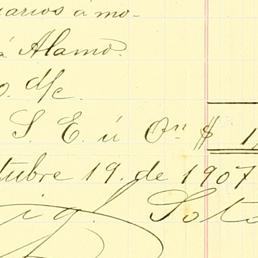 uarios á mo-
á Alamo.
d/c.
S. E. ú On $ 1
tubre 19. de 1907
Soto